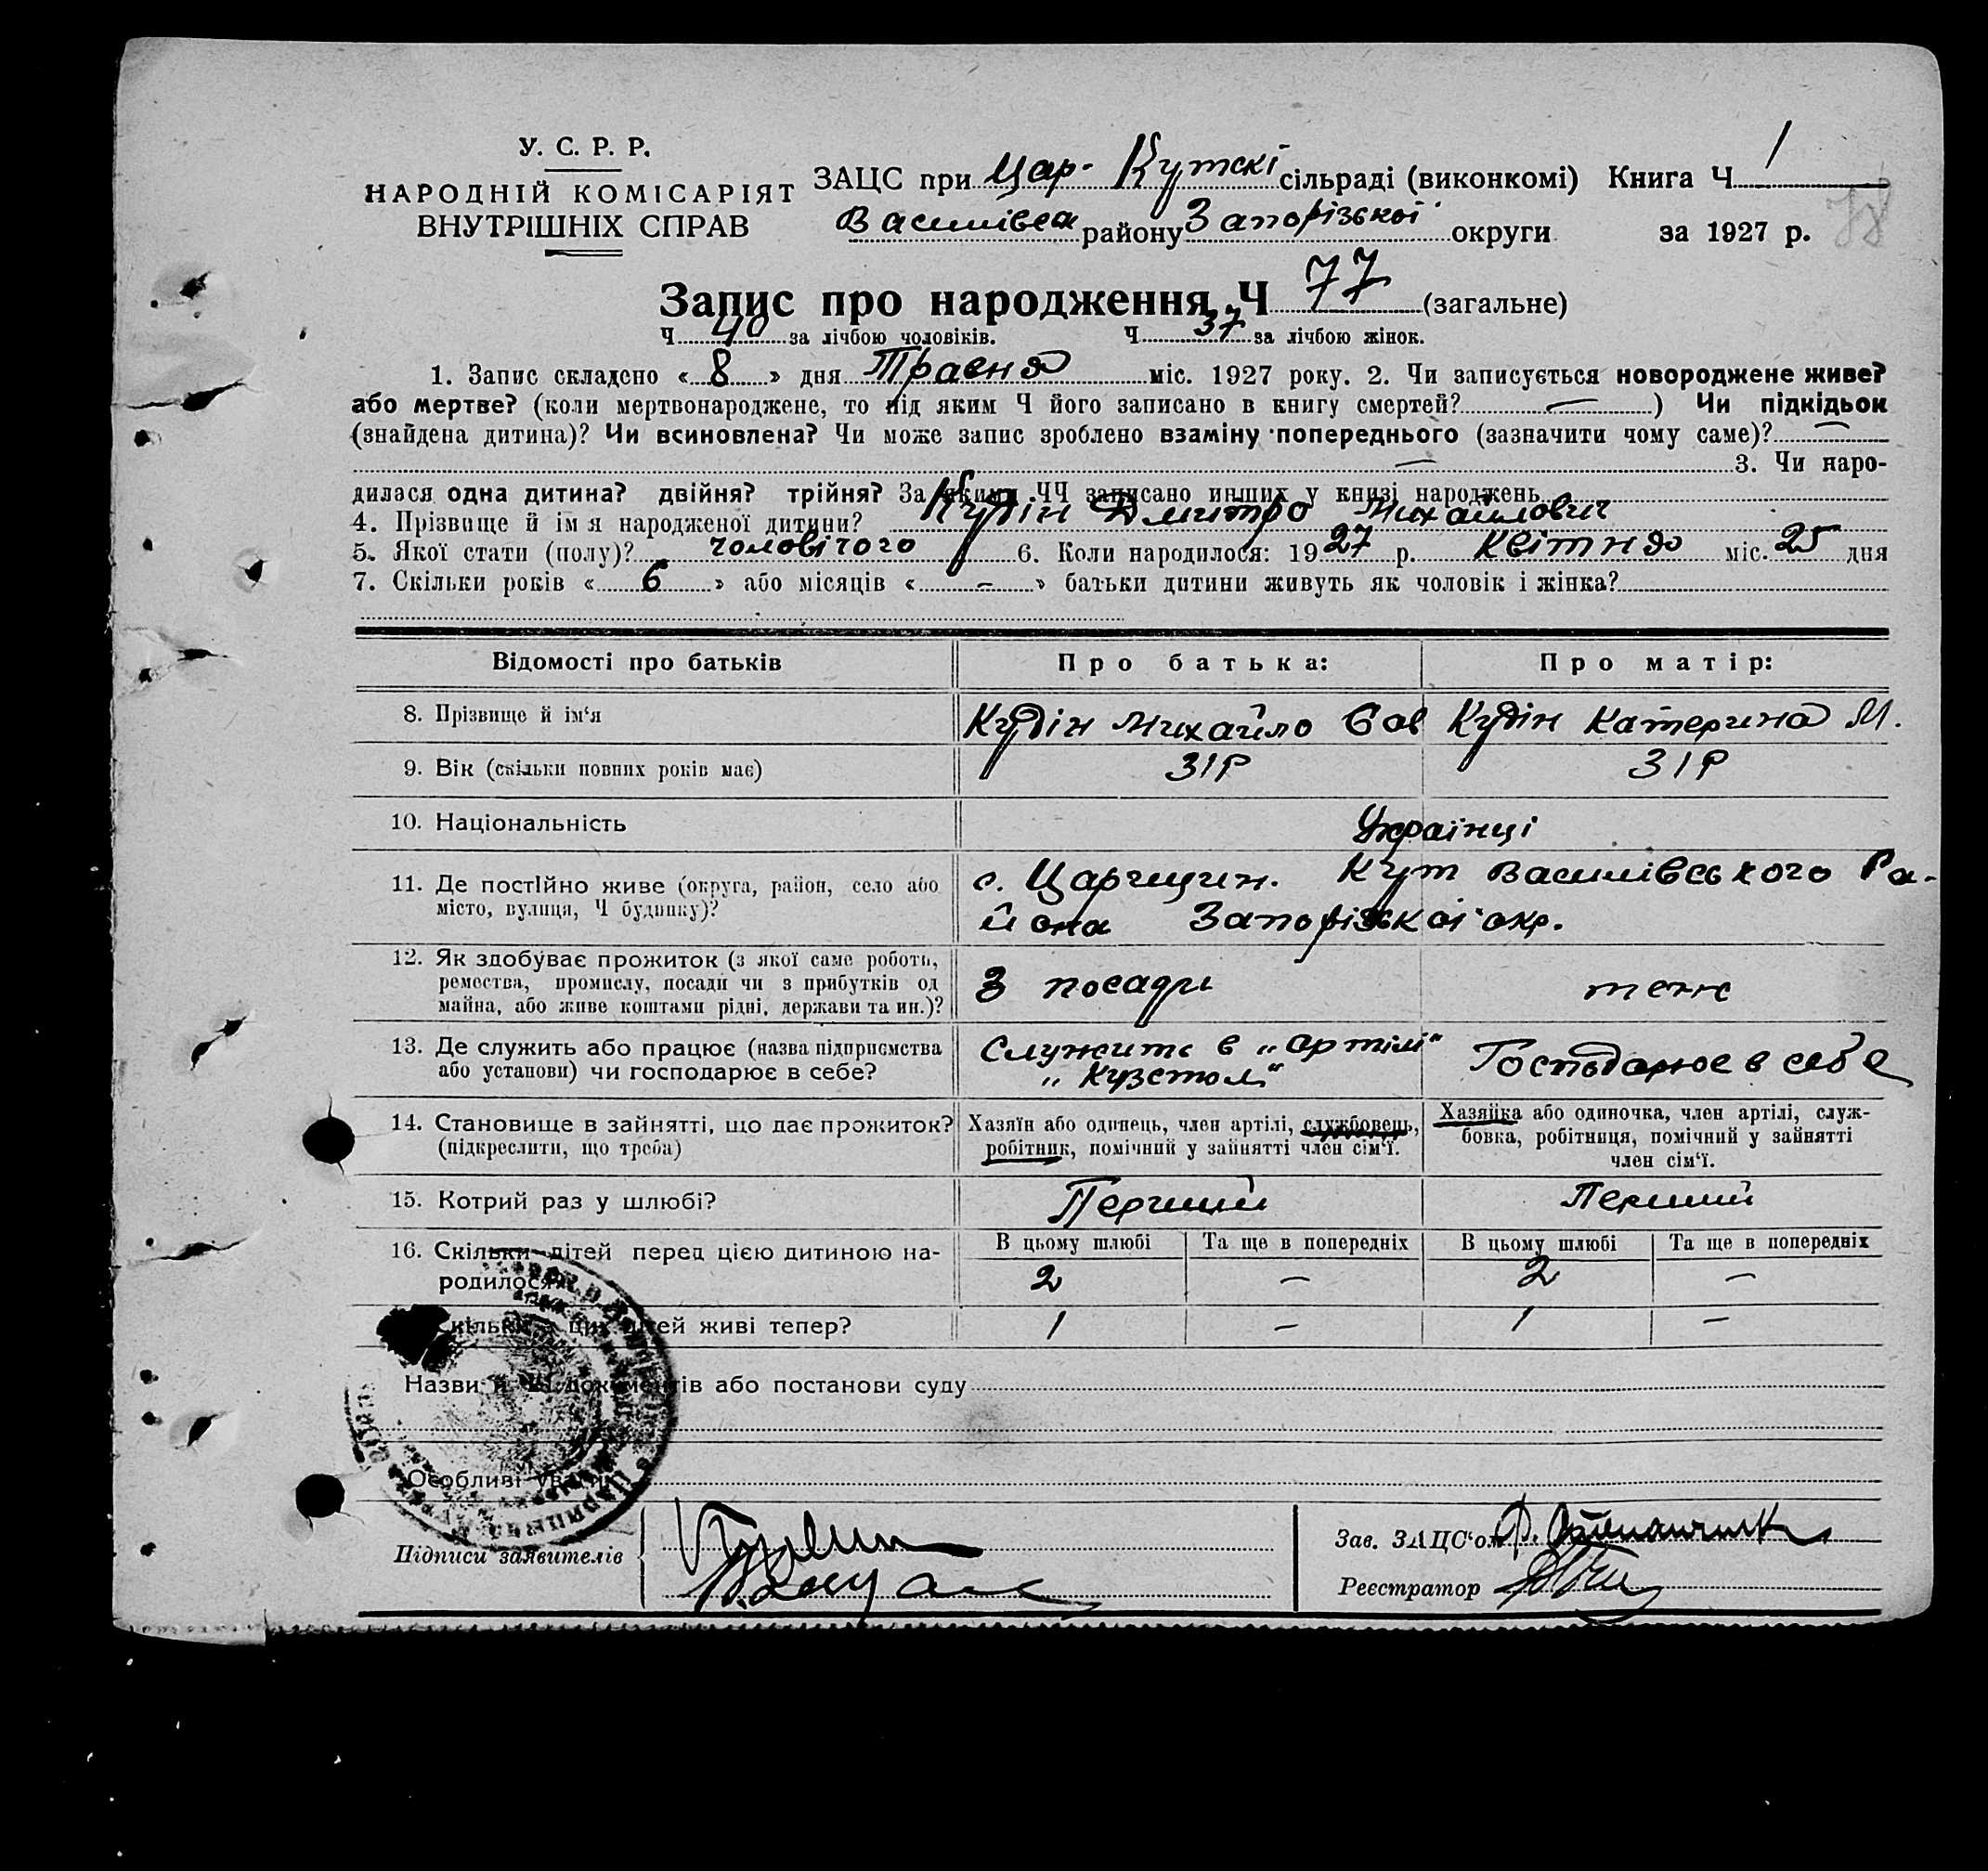 У. С. Р. Р.
НАРОДНІЙ КОМІСАРІЯТ
ВНУТРІШНІХ СПРАВ
ЗАЦС при Цар-Кутскі сільраді (виконкомі) Книга Ч 1
Василівск району Запорізької округи за 1927 р.
78
Запис про народження Ч 77 (загальне)
Ч 40 за лічбою чоловіків. Ч 37 за лічбою жінок.
1. Запис складено « 8 » дня Травня міс. 1927 року. 2. Чи записується новороджене живе?
або мертве? (коли мертвонароджене, то під яким Ч його записано в книгу смертей? — ) Чи підкідьок
(знайдена дитина)? Чи всиновлена? Чи може запис зроблено взаміну попереднього (зазначити чому саме)? —
— 3. Чи наро-
дилася одна дитина? двійня? трійня? За якими ЧЧ записано инших у книзі народжень
4. Прізвище й ім я народженої дитини? Кудін Дмитро Михайлович
5. Якої стати (полу)? чоловічого 6. Коли народилося: 1927 р. квітня міс. 25 дня
7. Скільки років « 6 » або місяців « – » батьки дитини живуть як чоловік і жінка?
Відомості про батьків Про батька: Про матір:
8. Прізвище й ім‘я Кудін Михайло Сав Кудін Катерина М.
9. Вік (скільки повних років має) 31р 31р
10. Національність Українці
11. Де постійно живе (округа, район, село або
місто, вулиця, Ч будинку)?
с. Царицин. Кут Василівського Ра-
йона Запорізької окр.
12. Як здобуває прожиток (з якої саме роботи,
ремества, промислу, посади чи з прибутків од
майна, або живе коштами рідні, держави та ин.)?
З посади теж
13. Де служить або працює (назва підприємства
або установи) чи господарює в себе?
Служить в „артілі“
„Кузстол“
Господарює в себе
14. Становище в зайнятті, що дає прожиток?
(підкреслити, що треба)
Хазяїн або одинець, член артілі, службовець,
робітник, помічний у зайнятті член сім‘ї.
Хазяйка або одиночка, член артілі, служ-
бовка, робітниця, помічний у зайнятті
член сім‘ї.
15. Котрий раз у шлюбі? Перший Перший
16. Скільки дітей перед цією дитиною на-
родилося?
В цьому шлюбі Та ще в попередніх В цьому шлюбі Та ще в попередніх
2 — 2 —
Скільки з цих дітей живі тепер? 1 – 1 –
Назви й ЧЧ документів або постанови суду
Особливі уваги
Підписи заявителів
Зав. ЗАЦС‘ом
Реєстратор